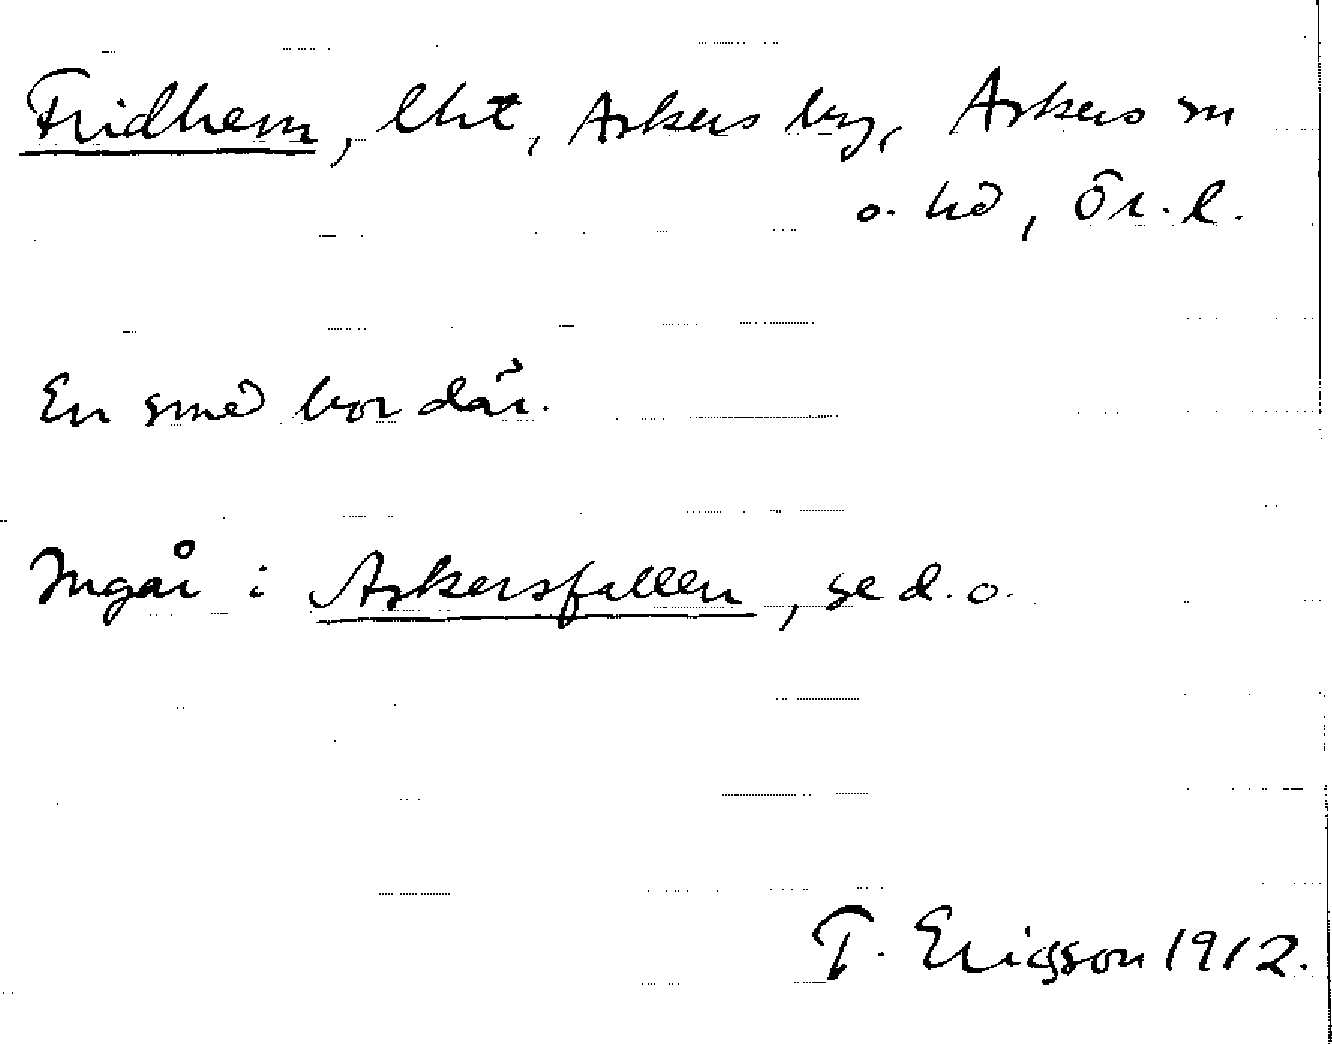 Fridhem, lht, Askers by, Askers sn
o. hd, Ör. l.
En smed bor där.
Ingår i Askersfallen, se d. o.
T. Ericsson 1912.